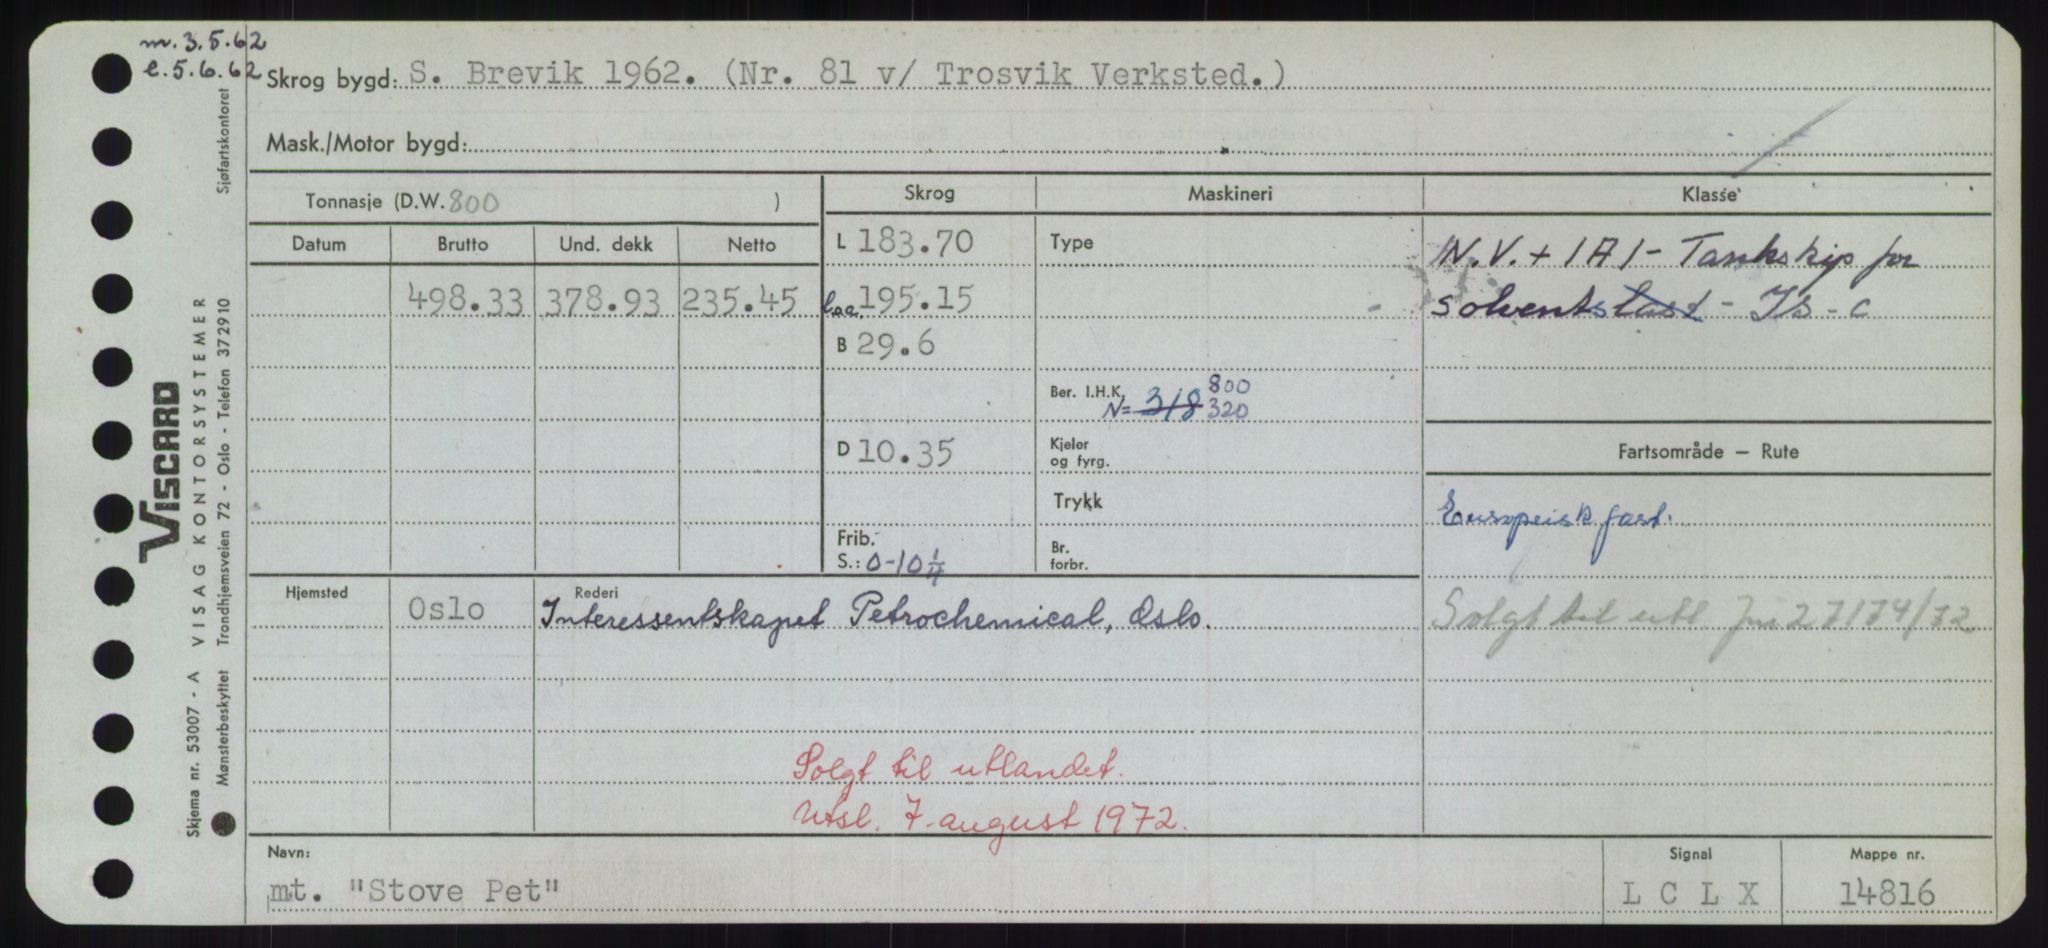 m. 3.5.62
e. 5.6.62
Skrog bygd: S. Brevik 1962. (Nr. 81 v/ Trosvik Verksted.)
Mask./Motor bygd:
Tonnasje (D.W. 800 )
Skrog Maskineri Klasse
Datum Brutto Und. dekk Netto
L 183.70 Type N.V. + 1A1 - Tankskip for
498.33 378.93 235.45 Loa. 195.15 solventslast - IS - C
B 29.6
Ber. I.H.K. 800
N= 318 320
D 10.35 Kjeler
og fyrg.
Fartsområde — Rute
Trykk
Europeisk fart.
Frib.
S.: 0-10 1/4 Br.
forbr.
Hjemsted Oslo Rederi Interessentskapet Petrochemical, Oslo.
Solgt til utl Jnr 27174/72
Solgt til utlandet.
Utsl. 7. august 1972.
Navn:
mt. "Stove Pet"
Signal
L C L X
Mappe nr.
14816
VISCARD
Skjema nr. 53007 - A VISAG KONTORSYSTEMER
Mønsterbeskyttet Trondhjemsveien 72 - Oslo - Telefon 372910 Sjøfartskontoret